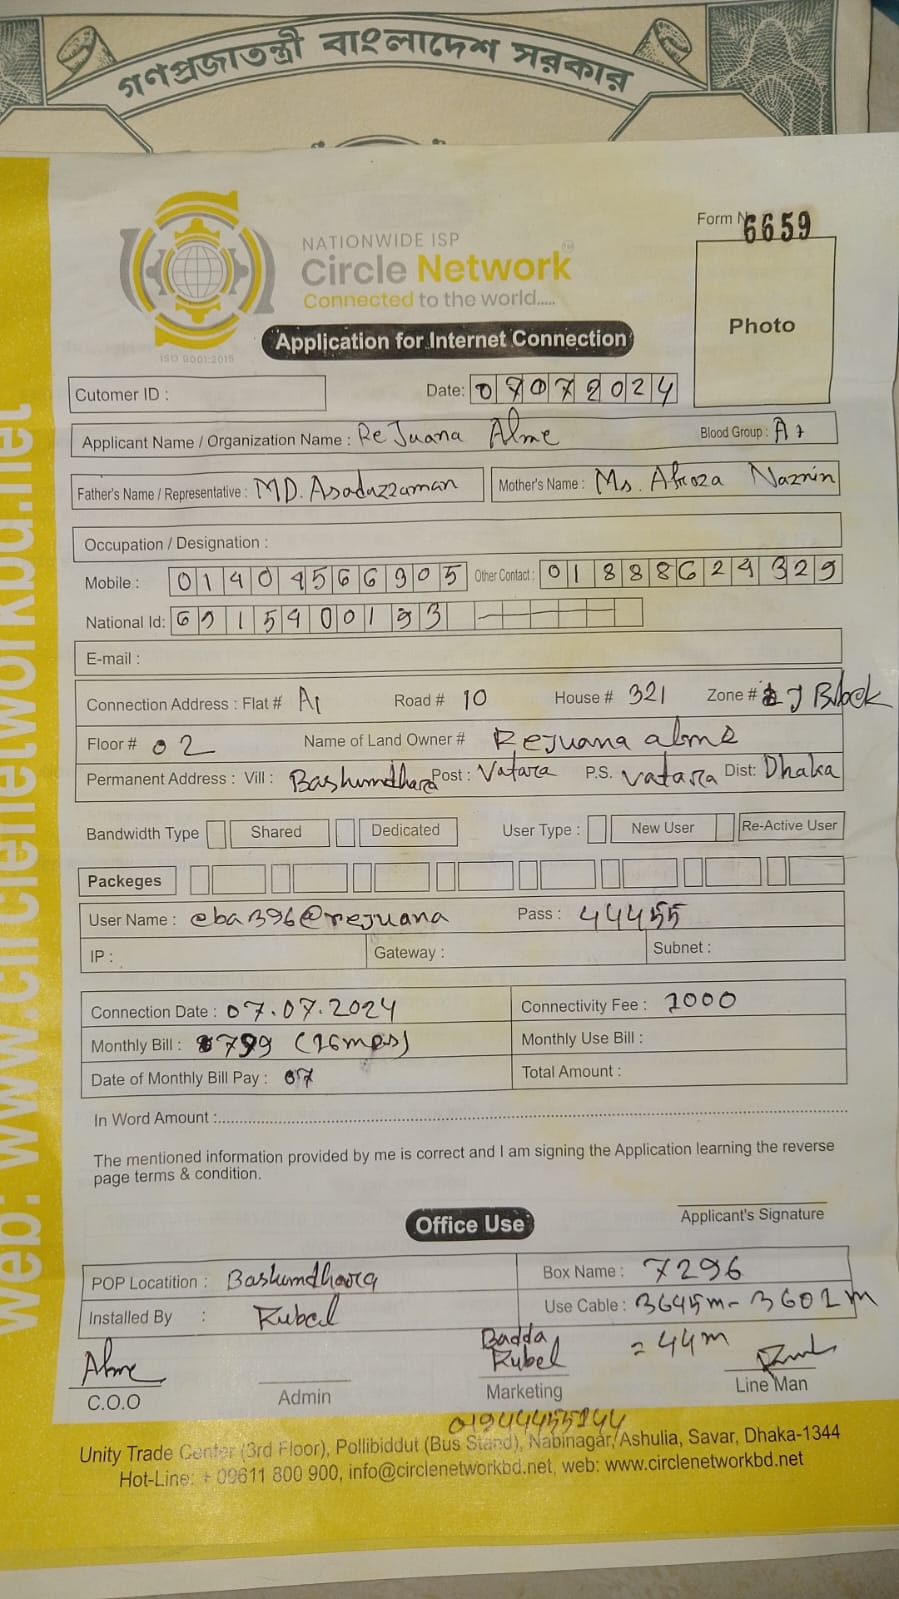 গণপ্রজাতন্ত্রী বাংলাদেশ সরকার
Form N 6659
NATIONWIDE ISP
Circle Network
Connected to the world.....
ISO 9001:2015
Application for Internet Connection
Photo
Cutomer ID :
Date: 07072024
Applicant Name / Organization Name : ReJuana Alme Blood Group : A+
Father's Name / Representative : MD. Asaduzzaman Mother's Name : Ms. Afroza Naznin
Occupation / Designation :
Mobile : 01404566905 Other Contact : 01888624329
National Id:
E-mail :
Connection Address : Flat # A1 Road # 10 House # 321 Zone # J Block
Floor # 02 Name of Land Owner # Rejuana alme
Permanent Address : Vill : Bashumdhara Post : Vatara P.S. vatara Dist: Dhaka
Bandwidth Type Shared Dedicated User Type : New User Re-Active User
Packeges
User Name : eba396@rejuana Pass : 44455
IP : Gateway : Subnet :
Connection Date : 07.07.2024 Connectivity Fee : 1000
Monthly Bill : 799 (16mps) Monthly Use Bill :
Date of Monthly Bill Pay : 07 Total Amount :
In Word Amount :
The mentioned information provided by me is correct and I am signing the Application learning the reverse
page terms & condition.
Applicant's Signature
Office Use
POP Locatition : Bashumdhara Box Name : 7296
Installed By : Rubel Use Cable : 3645m- 3601m
= 44m
Alme Badda Rubel
C.O.O Admin Marketing Line Man
01944455144
Unity Trade Center (3rd Floor), Pollibiddut (Bus Stand), Nabinagar, Ashulia, Savar, Dhaka-1344
Hot-Line: + 09611 800 900, info@circlenetworkbd.net, web: www.circlenetworkbd.net
web: www.circlenetworkbd.net